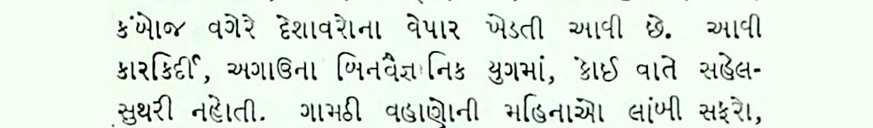 કંબોજ વગેરે દેશાવરોના વેપાર ખેડતી આવી છે. આવી
કારકિર્દી, અગાઉના બિનવૈજ્ઞાનિક યુગમાં, કોઈ વાતે સહેલ-
સુથરી નહોતી. ગામઠી વહાણોની મહિનાઓ લાંબી સફરો,